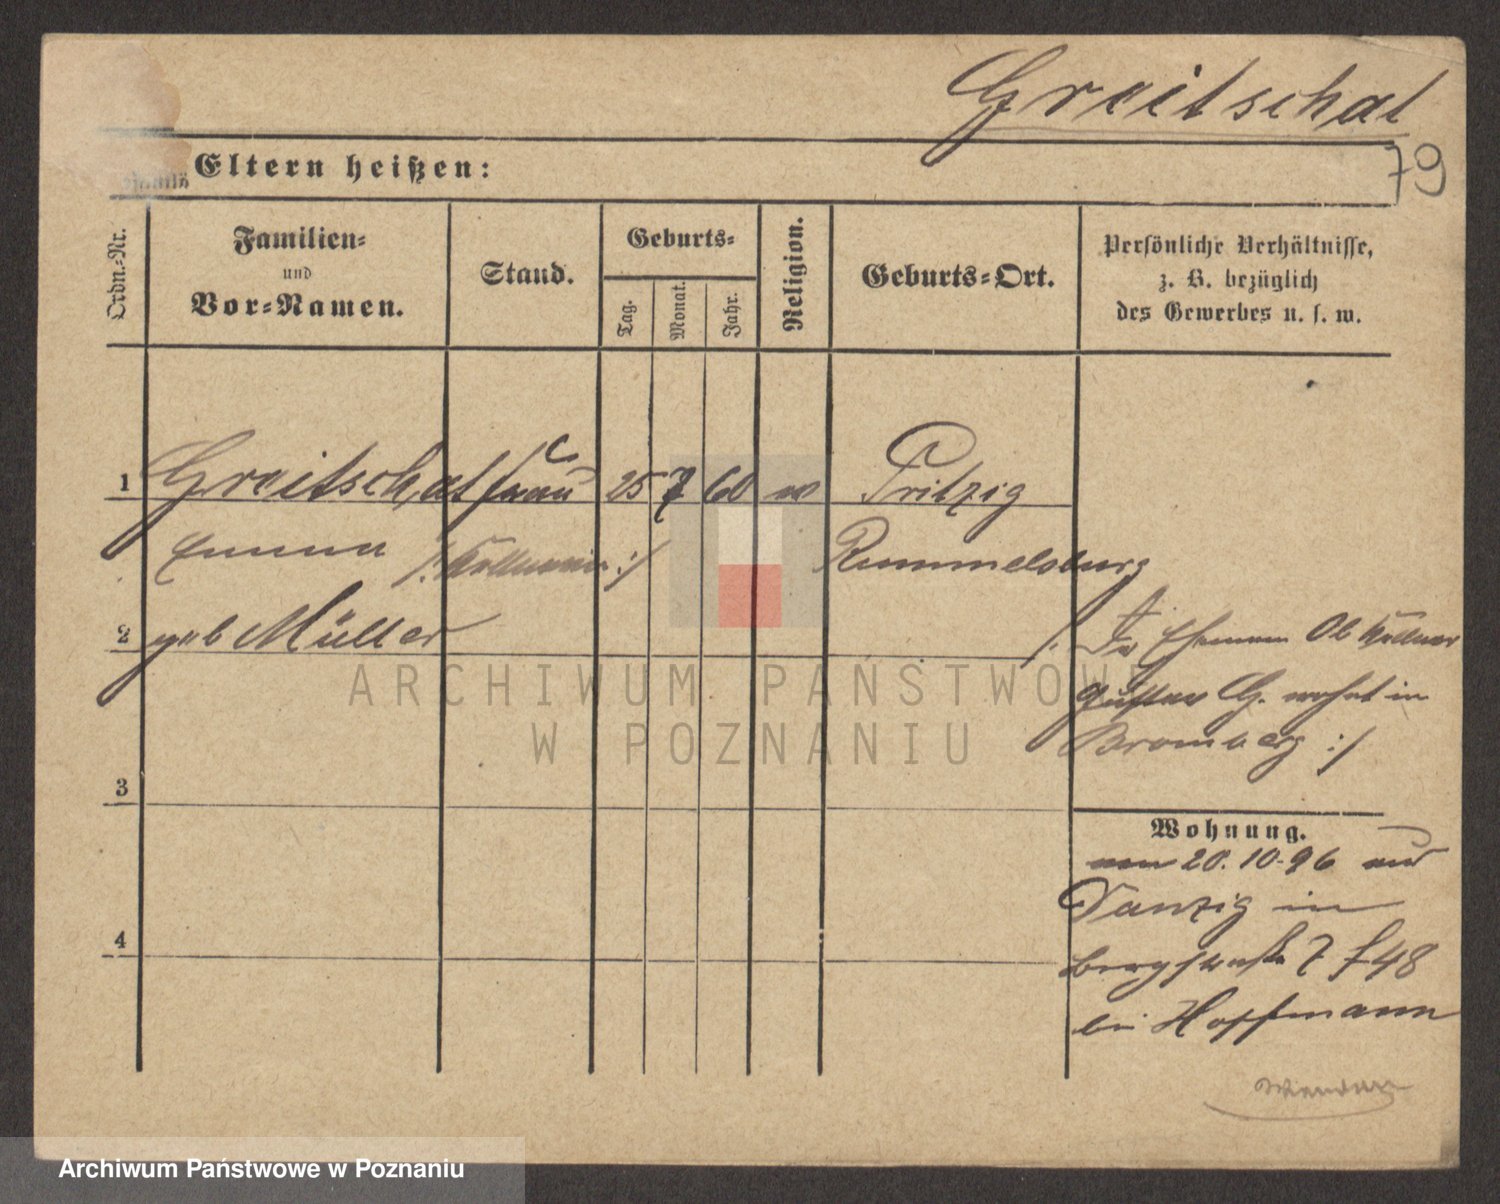 Greitschat
79
Eltern heißen:
Ordn.-Nr.
Familien-
und
Vor-Namen.
Stand.
Geburts-
Tag.
Monat.
Jahr.
Religion.
Geburts-Ort.
Persönliche Verhältnisse,
z. B. bezüglich
des Gewerbes u. s. w.
1 Greitschat Frau 25 7 60 Pritzig
Emma /: Kellnerin :/ Rummelsburg
2 geb Müller
/: Ehemann Ob Kellner
Gustav G. wohnt in
Bromberg :/
3
4
Wohnung.
von 20.10.96 aus
Danzig in
Bergstraße 7 48
bei Hoffmann
ARCHIWUM PAŃSTWOWE
W POZNANIU
Archiwum Państwowe w Poznaniu